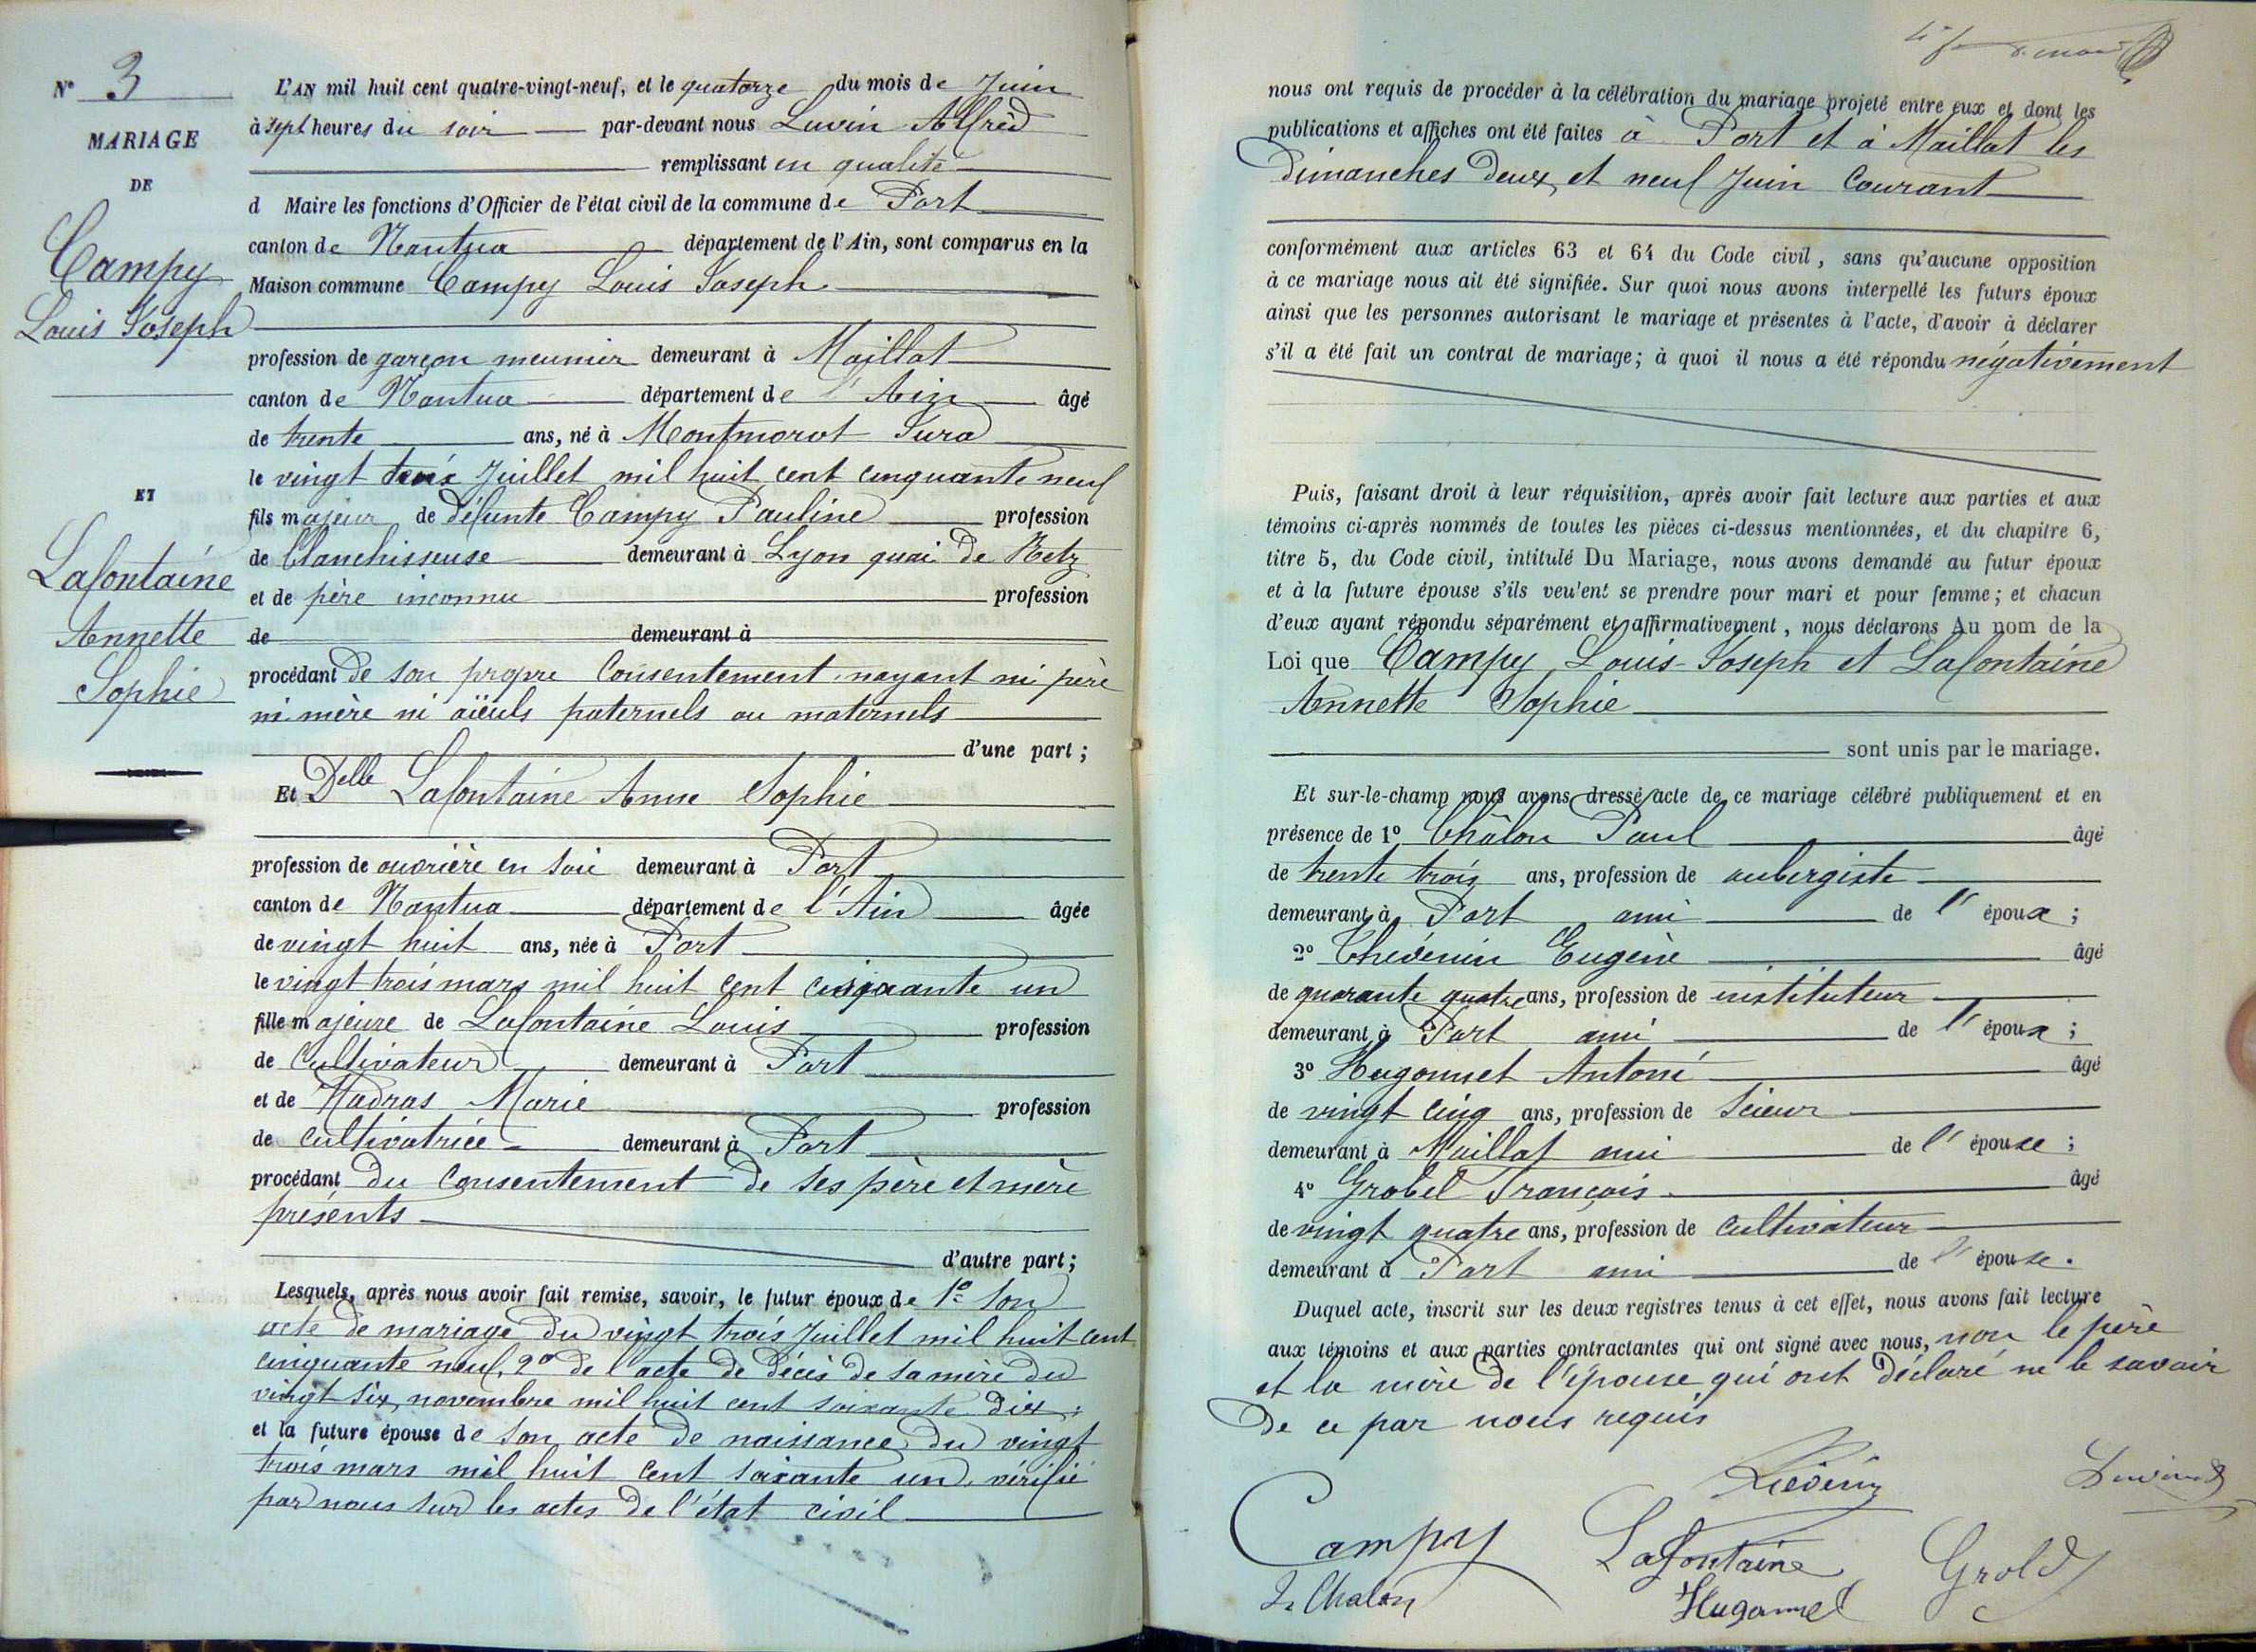 N° 3
MARIAGE
DE
Campy
Louis Joseph
ET
Lafontaine
Annette
Sophie
L'AN mil huit cent quatre-vingt-neuf, et le quatorze du mois de Juin
à sept heures du soir par-devant nous Luvin Alfred
remplissant en qualité
d Maire les fonctions d'Officier de l'état civil de la commune de Port
canton de Nantua département de l'Ain, sont comparus en la
Maison commune Campy Louis Joseph
profession de garçon meunier demeurant à Maillat
canton de Nantua département de l'Ain âgé
de trente ans, né à Montmorot Jura
le vingt trois Juillet mil huit cent cinquante neuf
fils majeur de défunte Campy Pauline profession
de blanchisseuse demeurant à Lyon quai de Retz
et de père inconnu profession
de demeurant à
procédant de son propre consentement, nayant ni père
ni mère ni aïeuls paternels ou maternels
d'une part ;
Et Delle Lafontaine Anne Sophie
profession de ouvrière en soie demeurant à Port
canton de Nantua département de l'Ain âgée
de vingt huit ans, née à Port
le vingt trois mars mil huit cent cinquante un
fille majeure de Lafontaine Louis profession
de cultivateur demeurant à Port
et de Nadras Marie profession
de cultivatrice demeurant à Port
procédant du consentement de ses père et mère
présents
d'autre part ;
Lesquels, après nous avoir fait remise, savoir, le futur époux de 1° son
acte de mariage du vingt trois Juillet mil huit cent
cinquante neuf, 2° de l'acte de décès de sa mère du
vingt six novembre mil huit cent soixante dix ;
et la future épouse de son acte de naissance du vingt
trois mars mil huit cent soixante un, vérifié
par nous sur les actes de l'état civil
nous ont requis de procéder à la célébration du mariage projeté entre eux et dont les
publications et affiches ont été faites à Port et à Maillat les
dimanches deux et neuf Juin courant
conformément aux articles 63 et 64 du Code civil, sans qu'aucune opposition
à ce mariage nous ait été signifiée. Sur quoi nous avons interpellé les futurs époux
ainsi que les personnes autorisant le mariage et présentes à l'acte, d'avoir à déclarer
s'il a été fait un contrat de mariage; à quoi il nous a été répondu négativement
Puis, faisant droit à leur réquisition, après avoir fait lecture aux parties et aux
témoins ci-après nommés de toutes les pièces ci-dessus mentionnées, et du chapitre 6,
titre 5, du Code civil, intitulé Du Mariage, nous avons demandé au futur époux
et à la future épouse s'ils veu'ent se prendre pour mari et pour femme; et chacun
d'eux ayant répondu séparément et affirmativement, nous déclarons Au nom de la
Loi que Campy Louis-Joseph et Lafontaine
Annette Sophie
sont unis par le mariage.
Et sur-le-champ nous avons dressé acte de ce mariage célébré publiquement et en
présence de 1° Châlon Paul âgé
de trente trois ans, profession de aubergiste
demeurant à Port ami de l'époux ;
2° Thévenin Eugène âgé
de quarante quatre ans, profession de instituteur
demeurant à Port ami de l'époux ;
3° Hugonnet Antoni âgé
de vingt cinq ans, profession de scieur
demeurant à Maillat ami de l'épouse ;
4° Grobel François âgé
de vingt quatre ans, profession de cultivateur
demeurant à Port ami de l'épouse.
Duquel acte, inscrit sur les deux registres tenus à cet effet, nous avons fait lecture
aux témoins et aux parties contractantes qui ont signé avec nous, non le père
et la mère de l'épouse qui ont déclaré ne le savoir
de ce par nous requis
Campy
Lafontaine
Grobel
Chalon
Hugonnet